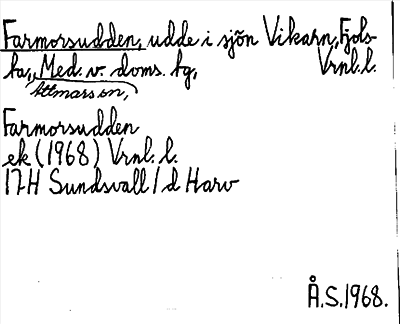 Farmorsudden, udde i sjön Vikarn, Fjols-
ha, Med. v. doms. hg, Vrnl. l.
Attmars sn,
Farmorsudden
ek (1968) Vrnl. l.
17H Sundsvall 1 d Harv
Å.S. 1968.